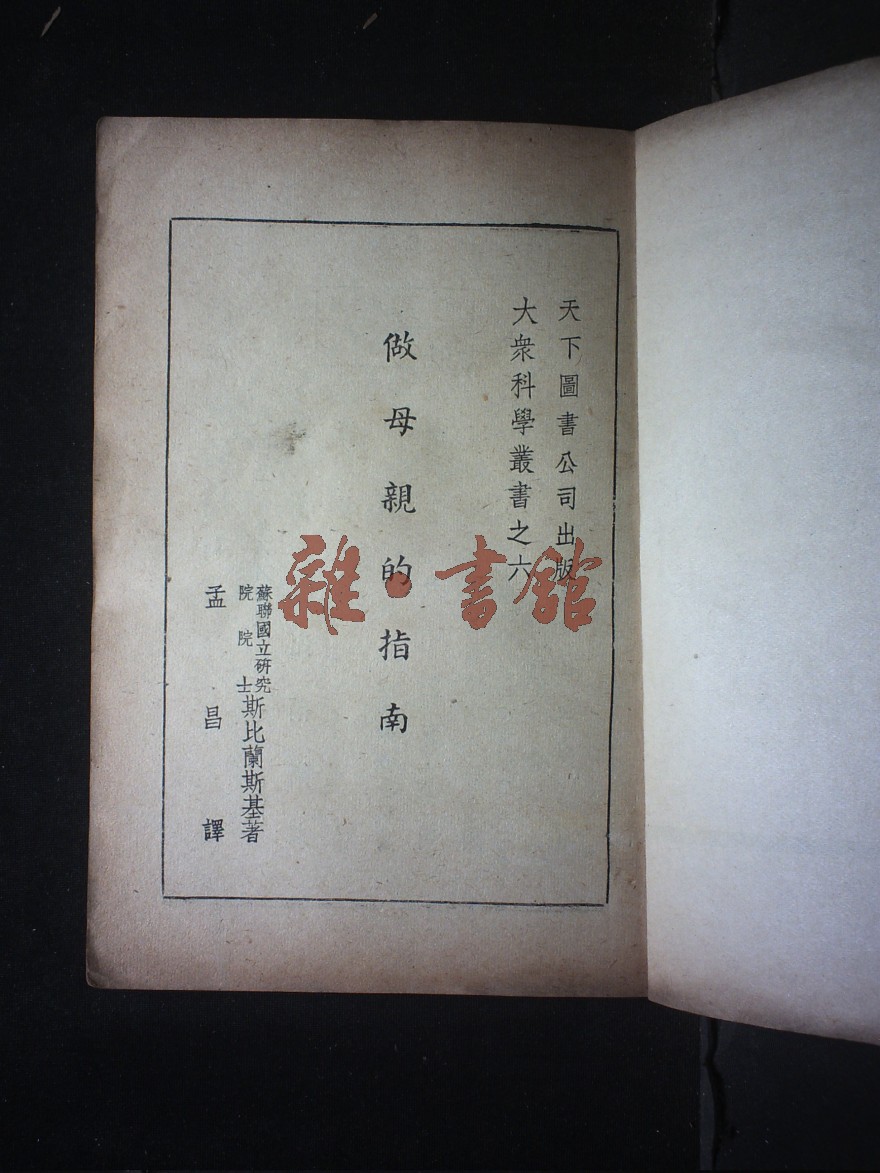 天下圖書公司出版
大衆科學叢書之六
做母親的指南
蘇聯國立研究
院院士
斯比蘭斯基著
孟昌譯
雜·書館